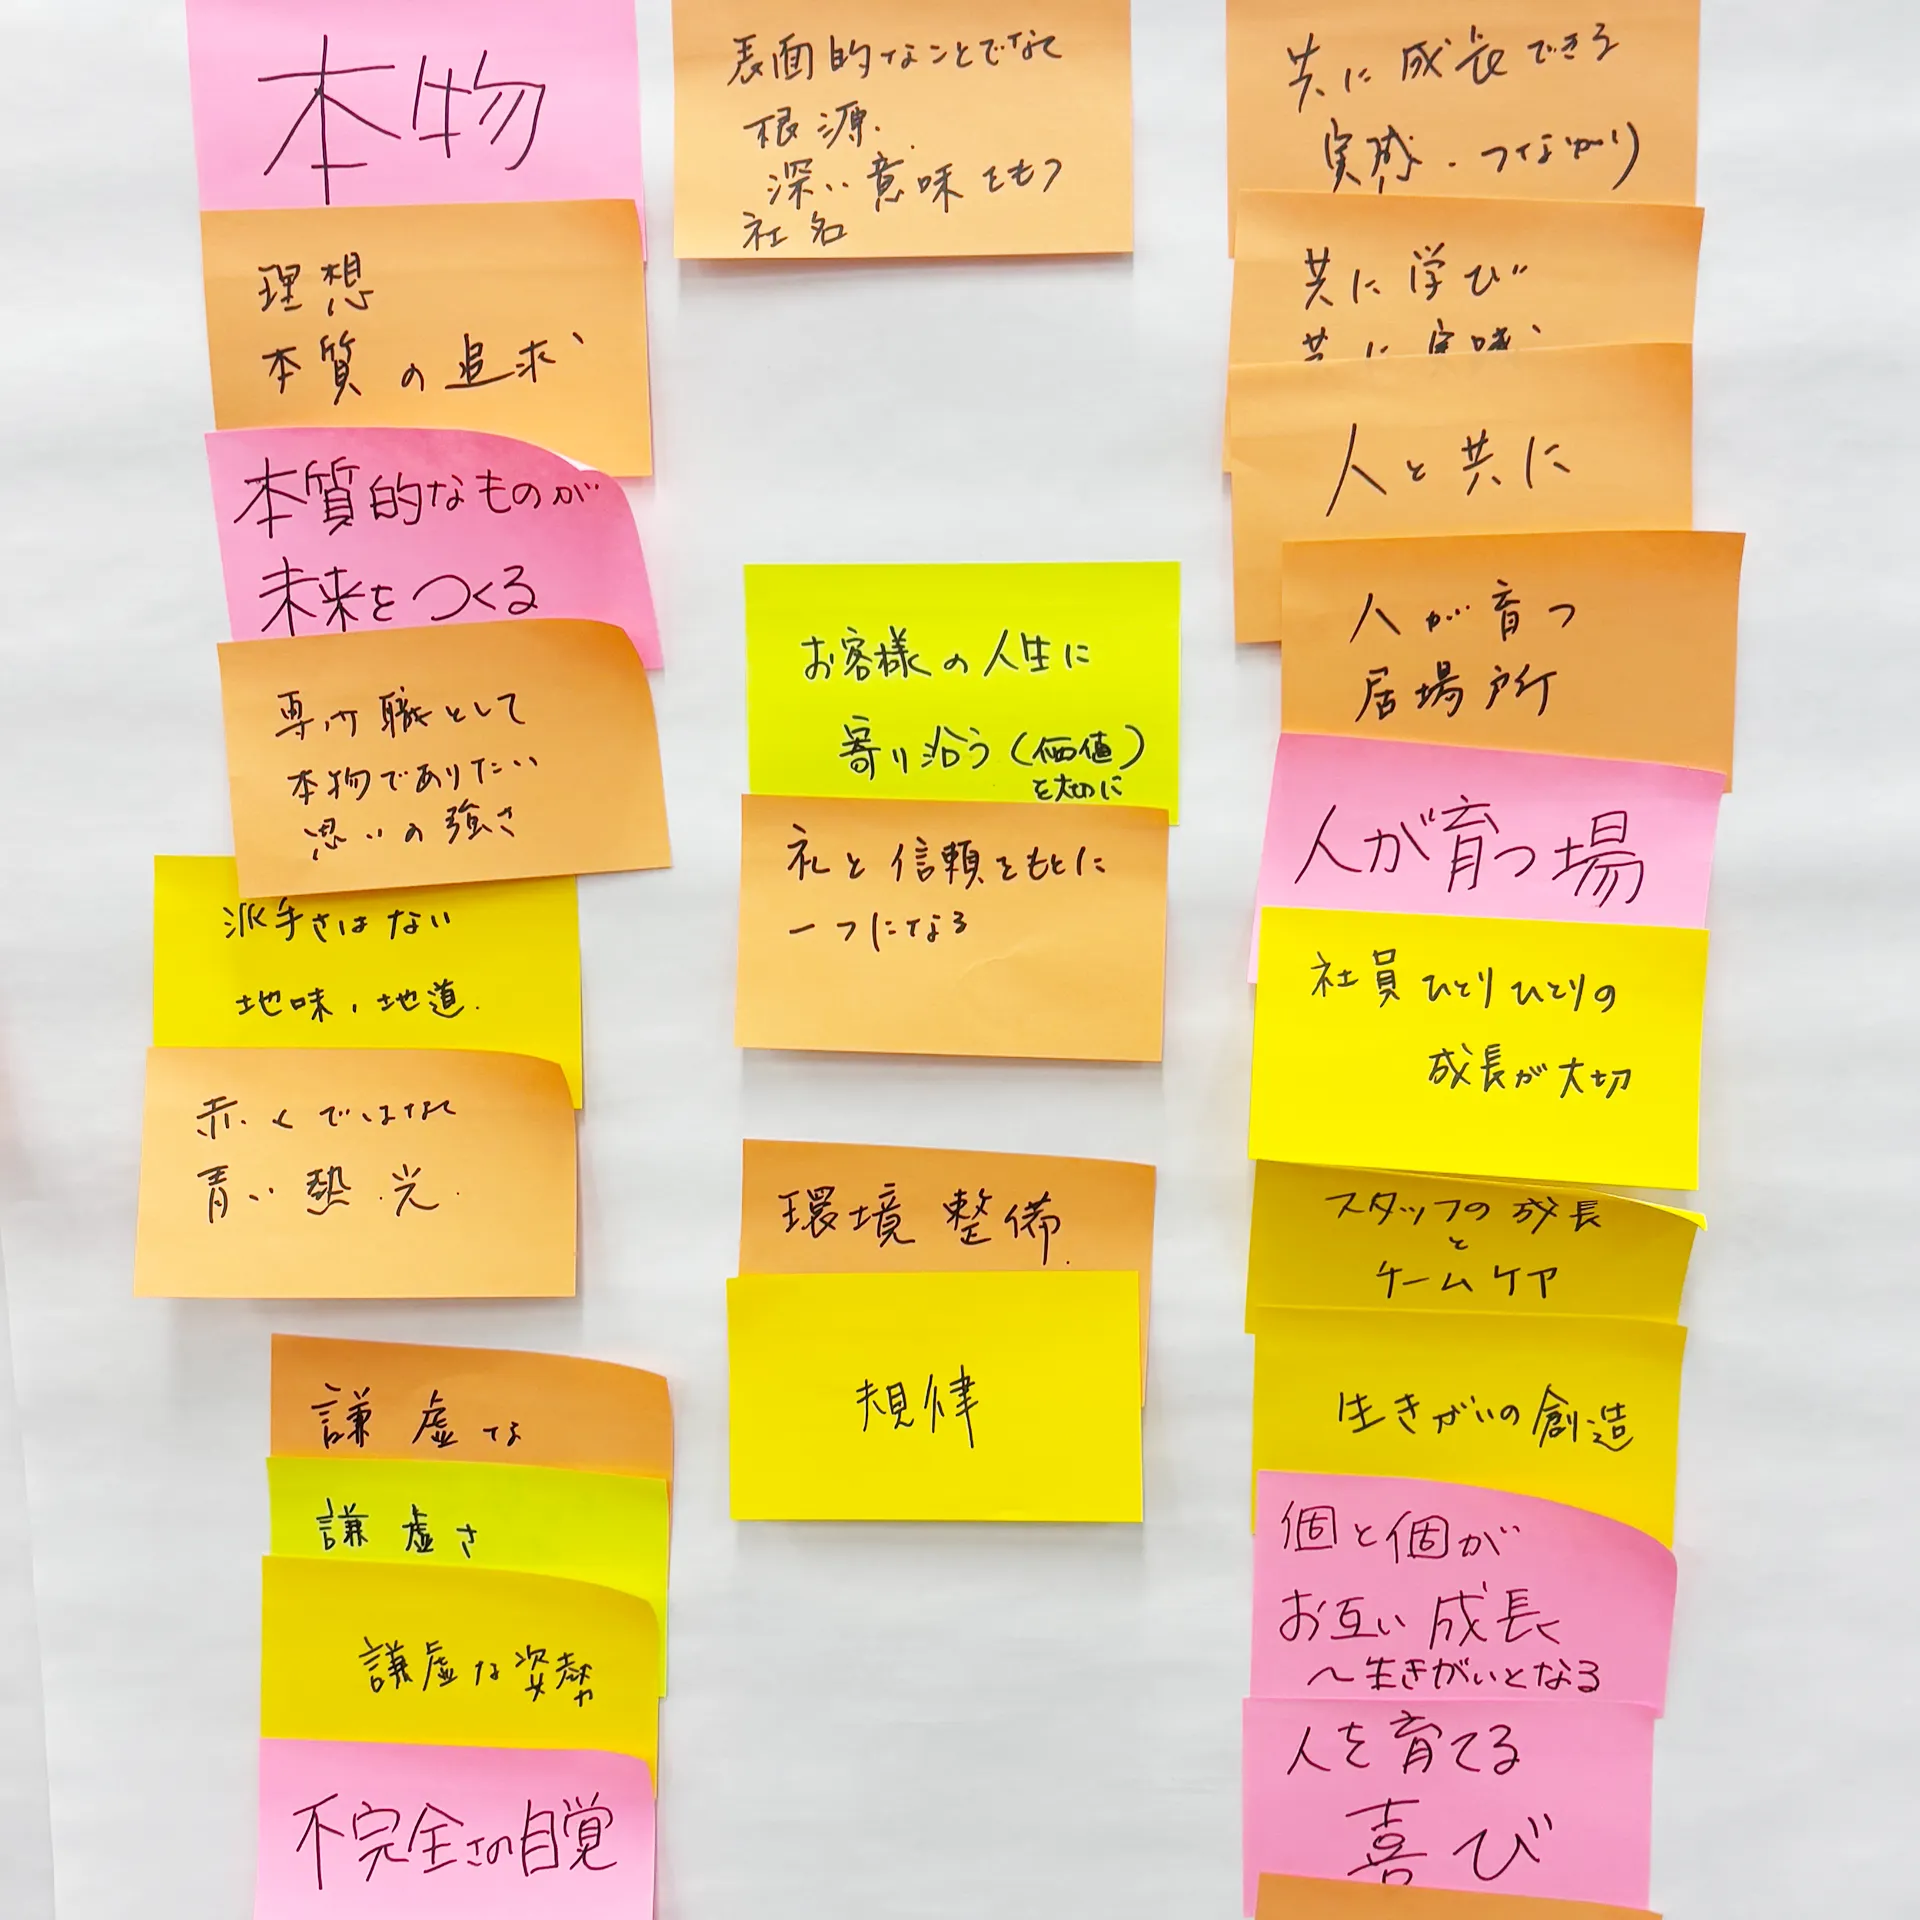 本物
理想
本質の追求
本質的なものが
未来をつくる
専門職として
本物でありたい
思いの強さ
派手さはない
地味、地道.
赤くではなく
青い熱.光.
謙虚な
謙虚さ
謙虚な姿勢
不完全さの自覚
表面的なことでなく
根源.
深い意味をもつ
社名
お客様の人生に
寄り沿う(価値)
を大切に
礼と信頼をもとに
一つになる
環境整備.
規律
共に成長できる
実感.つながり
共に学び
共に
人と共に
人が育つ
居場所
人が育つ場
社員ひとりひとりの
成長が大切
スタッフの成長
と
チームケア
生きがいの創造
個と個が
お互い成長し
〜生きがいとなる
人を育てる
喜び